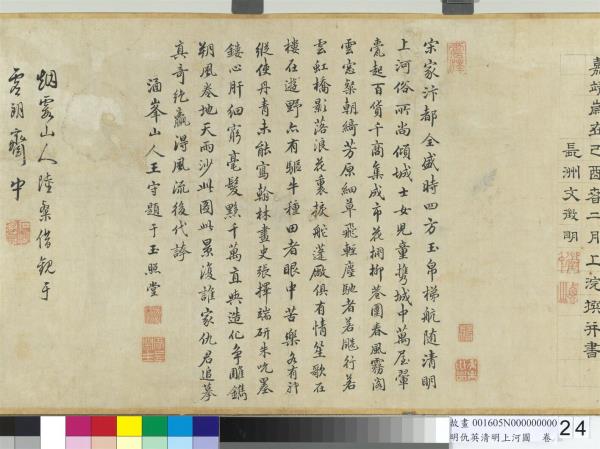 嘉靖歲在己酉春二月上浣撰并書
長洲文徵明
宋家汴都全盛時四方玉帛梯航隨清明
上河俗所尚傾城士女兒童攜城中萬屋翬
甍起百貨千商集成市花棚柳巷圍春風霧閣
雲窗粲朝綺芳原細草飛輕塵馳者若飈行若
雲虹橋影落浪花裏捩舵蓬𢊍俱有情笙歌在
樓在遊野亦有驅牛種田者眼中苦樂各有
縱使丹青未能寫翰林畫史張擇端研朱吮墨
鏤心肝細窮毫髮夥千萬直與造化爭雕鐫
朔風卷地天雨沙此圖此景復誰家仇君追摹
真奇絕贏得風流後代誇
涵峯山人王守題于玉照堂
烟霞山人陸粲借觀于
虛朗齋中
故畫 001605N000000000
明仇英清明上河圖 卷
24